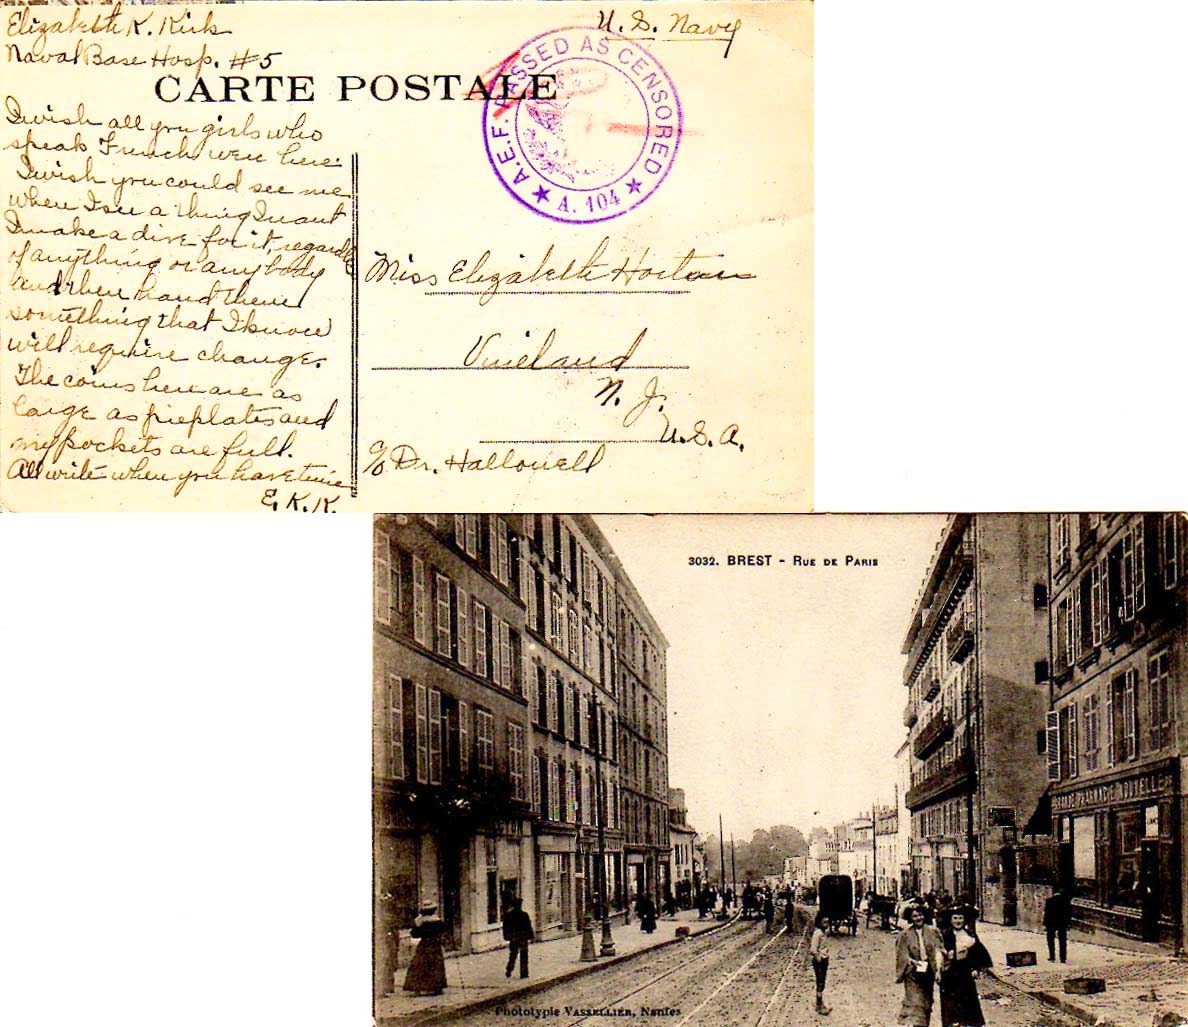 Elizabeth K. Kirk
Naval Base Hosp. #5
U. S. Navy
CARTE POSTALE
A.E.F. PASSED AS CENSORED
★ A. 104 ★
I wish all you girls who
speak French were here.
I wish you could see me
when I see a thing I want
I make a dive for it, regardle
of anything or anybody
and then hand them
something that I know
will require change.
The coins here are as
large as pieplates and
my pockets are full.
All write when you have time
E. K. K.
Miss Elizabeth Horton
Vineland
N. J.
U.S.A.
c/o Dr. Hallowell
3032. BREST - RUE DE PARIS
GRANDE PHARMACIE NOUVELLE
Phototypie VASSELLIER, Nantes